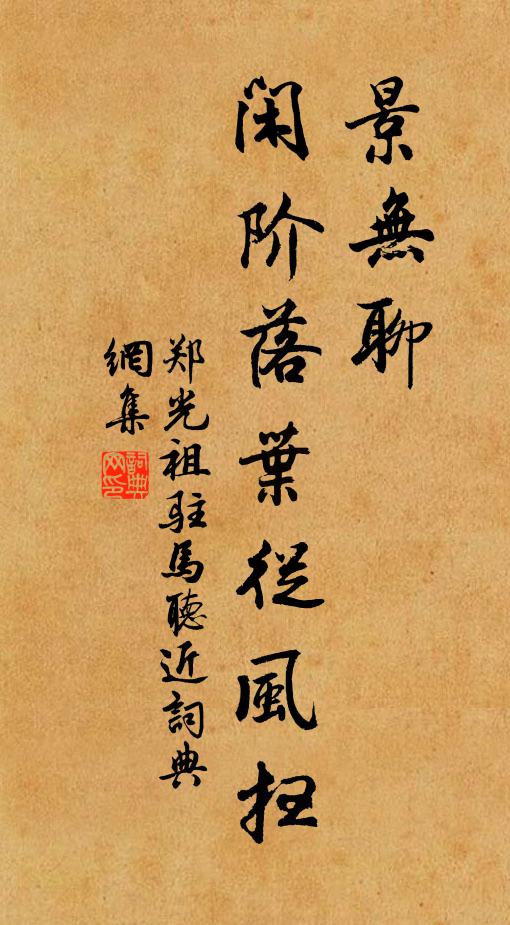 景無聊
闲阶落葉從風扫
郑光祖駐馬聽近詞典
網集
詞典
网印